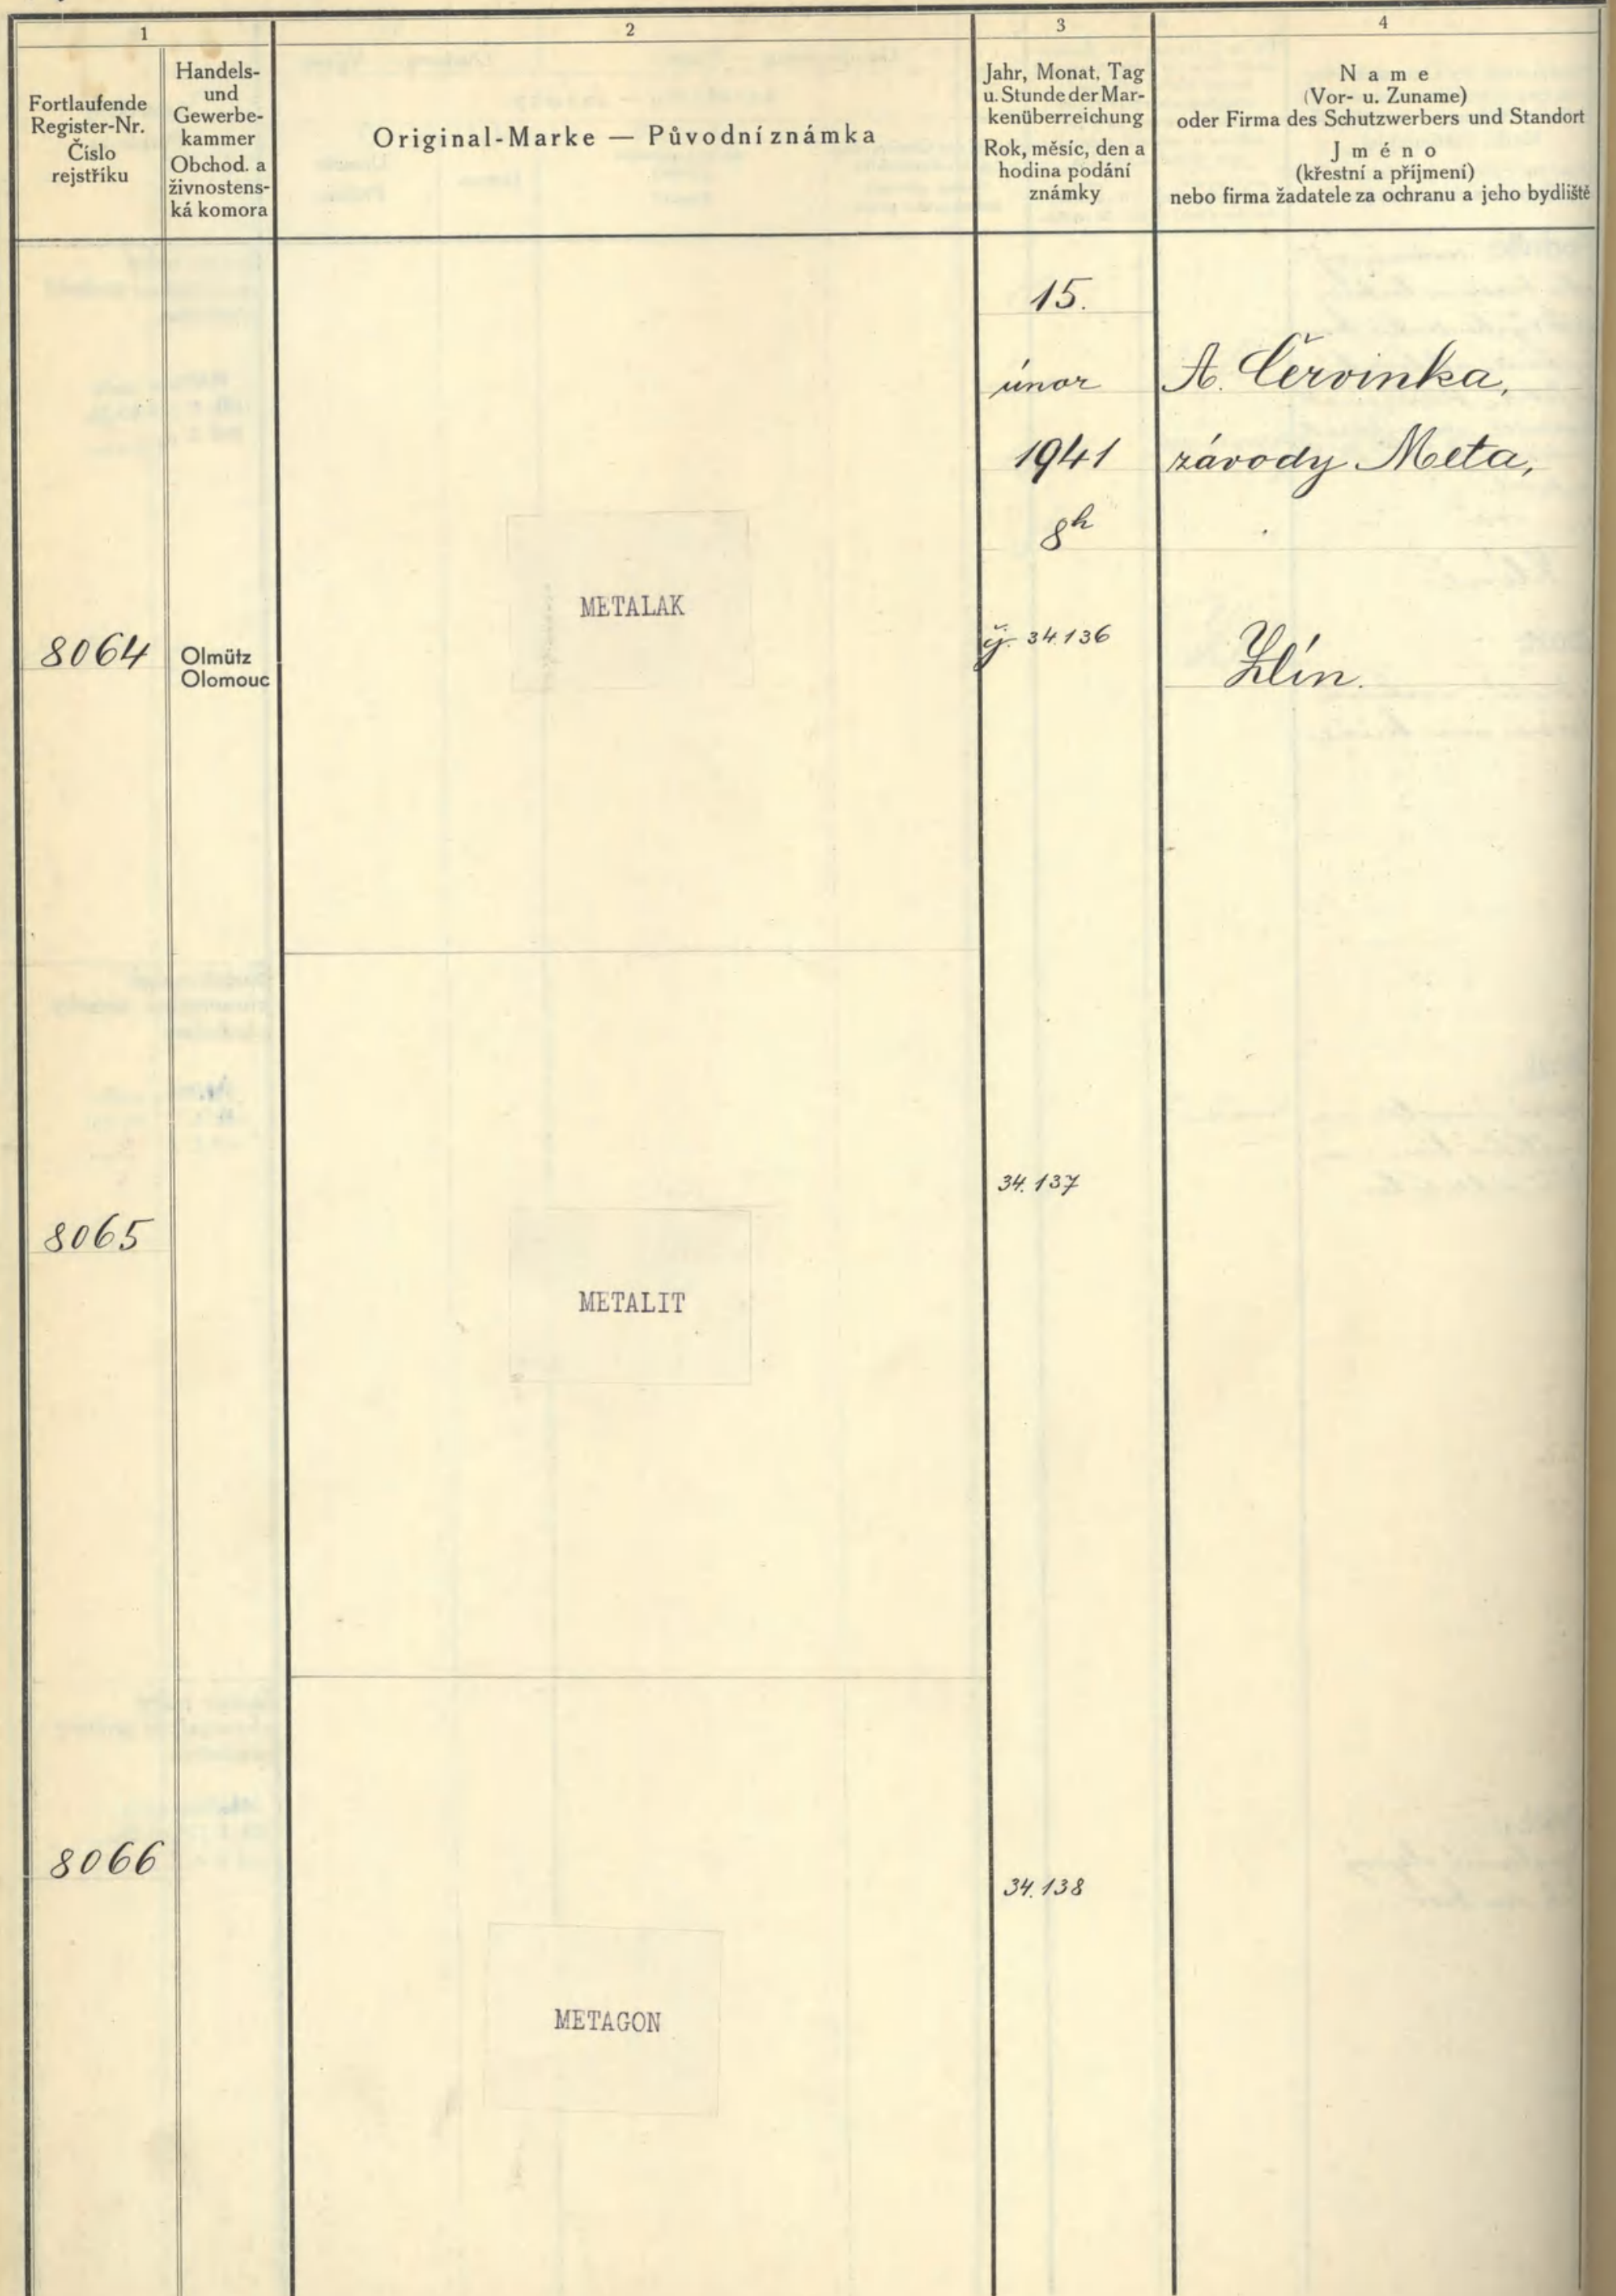 1
2
3
4
Fortlaufende
Register-Nr.
Číslo
rejstříku
Handels-
und
Gewerbe-
kammer
Obchod. a
živnostens-
ká komora
Original-Marke — Původní známka
Jahr, Monat, Tag
u. Stunde der Mar-
kenüberreichung
Rok, měsíc, den a
hodina podání
známky
Name
(Vor- u. Zuname)
oder Firma des Schutzwerbers und Standort
Jméno
(křestní a příjmení)
nebo firma žadatele za ochranu a jeho bydliště
8064
Olmütz
Olomouc
METALAK
15.
únor
1941
8h
čj. 34.136
A. Červinka,
závody Meta,
Zlín.
8065
METALIT
34.137
8066
METAGON
34.138